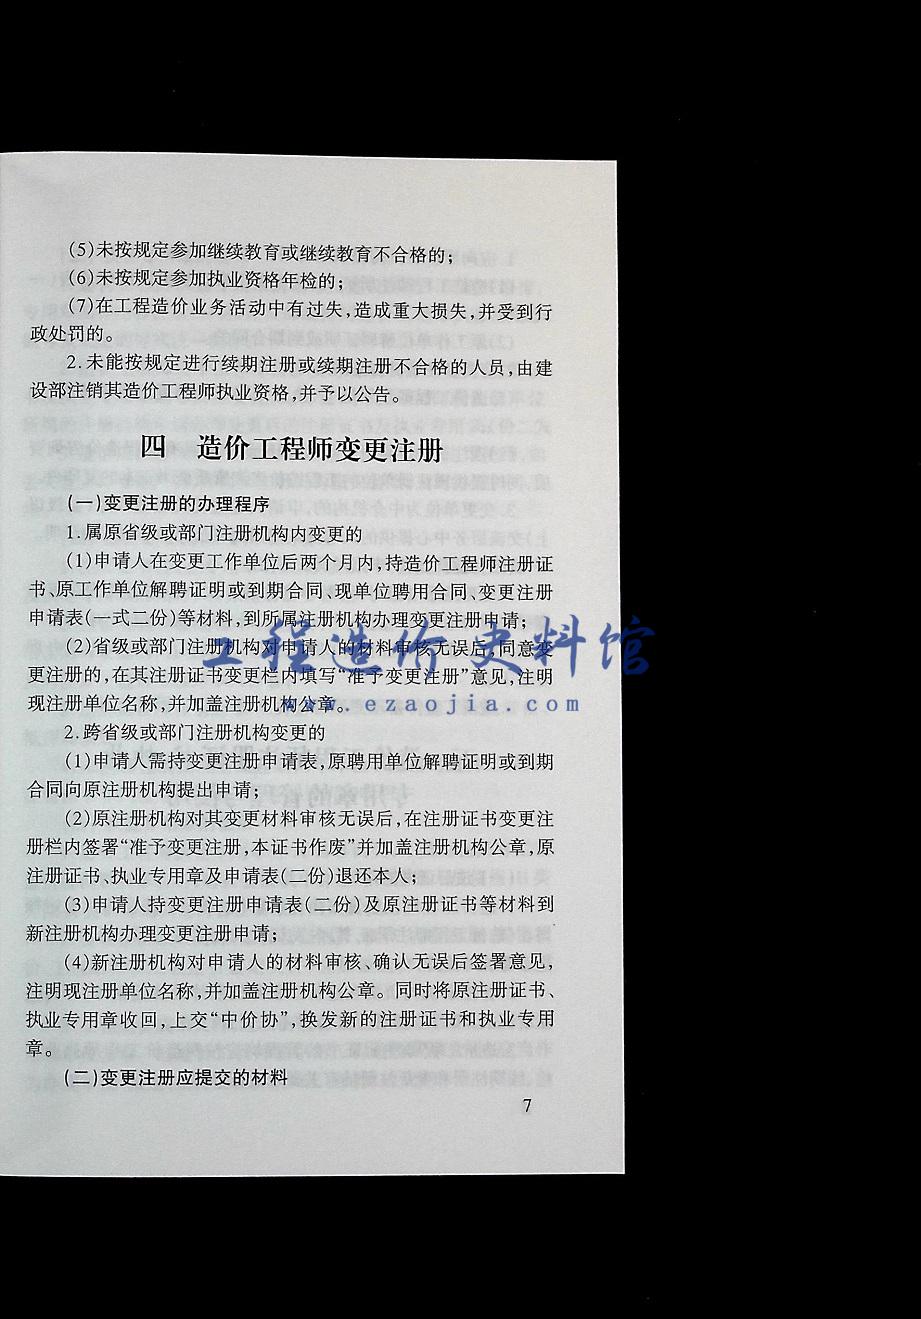 (5)未按规定参加继续教育或继续教育不合格的;
(6)未按规定参加执业资格年检的;
(7)在工程造价业务活动中有过失,造成重大损失,并受到行
政处罚的。
2.未能按规定进行续期注册或续期注册不合格的人员,由建
设部注销其造价工程师执业资格,并予以公告。
四 造价工程师变更注册
(一)变更注册的办理程序
1.属原省级或部门注册机构内变更的
(1)申请人在变更工作单位后两个月内,持造价工程师注册证
书、原工作单位解聘证明或到期合同、现单位聘用合同、变更注册
申请表(一式二份)等材料,到所属注册机构办理变更注册申请;
(2)省级或部门注册机构对申请人的材料审核无误后,同意变
更注册的,在其注册证书变更栏内填写“准予变更注册”意见,注明
现注册单位名称,并加盖注册机构公章。
工程造价史料馆
www.ezaojia.com
2.跨省级或部门注册机构变更的
(1)申请人需持变更注册申请表,原聘用单位解聘证明或到期
合同向原注册机构提出申请;
(2)原注册机构对其变更材料审核无误后,在注册证书变更注
册栏内签署“准予变更注册,本证书作废”并加盖注册机构公章,原
注册证书、执业专用章及申请表(二份)退还本人;
(3)申请人持变更注册申请表(二份)及原注册证书等材料到
新注册机构办理变更注册申请;
(4)新注册机构对申请人的材料审核、确认无误后签署意见,
注明现注册单位名称,并加盖注册机构公章。同时将原注册证书、
执业专用章收回,上交“中价协”,换发新的注册证书和执业专用
章。
(二)变更注册应提交的材料
7